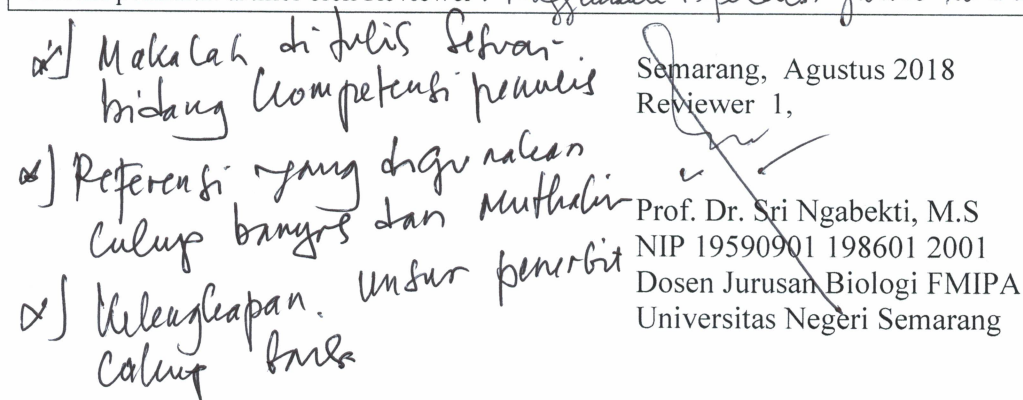 *] Makalah ditulis Sesuai
bidang kompetensi penulis
*] Referensi yang digunakan
cukup banyak dan Muthakir
*] Kelengkapan. unsur penerbit
cukup baik
Semarang, Agustus 2018
Reviewer 1,
Prof. Dr. Sri Ngabekti, M.S
NIP 19590901 198601 2001
Dosen Jurusan Biologi FMIPA
Universitas Negeri Semarang